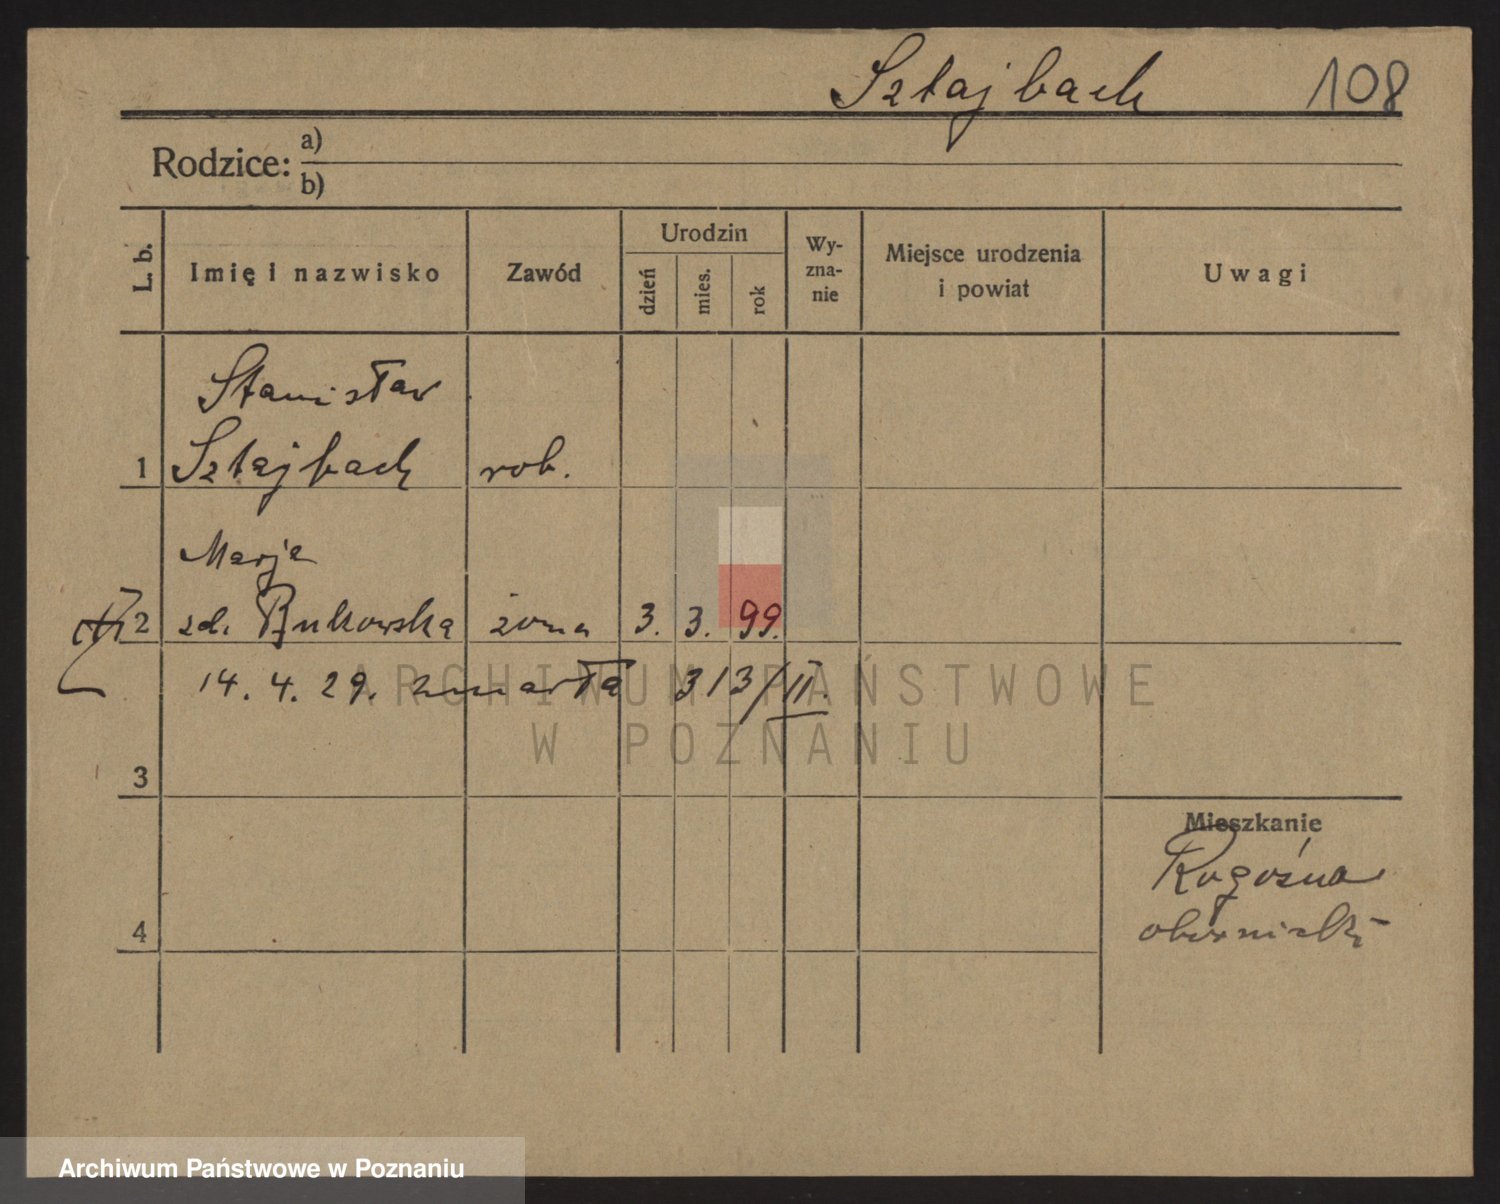 Sztajbach 108
Rodzice: a)
b)
L. b. Imię i nazwisko Zawód Urodzin dzień mies. rok Wy-
zna-
nie Miejsce urodzenia
i powiat Uwagi
Stanisław
1 Sztajbach rob.
Marja
2 zd. Bukowska żona 3. 3. 99.
14. 4. 29. zmarła 313/II.
ARCHIWUM PAŃSTWOWE
W POZNANIU
3
Mieszkanie
Rogoźna
4 obornicki
Archiwum Państwowe w Poznaniu